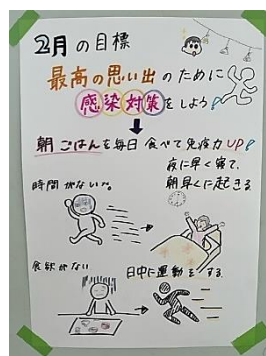 2月の目標
最高の思い出のために
感染対策をしよう!
朝ごはんを毎日食べて免疫力UP!
夜に早く寝て、
朝早くに起きる
時間がない。
食欲がない
日中に運動をする